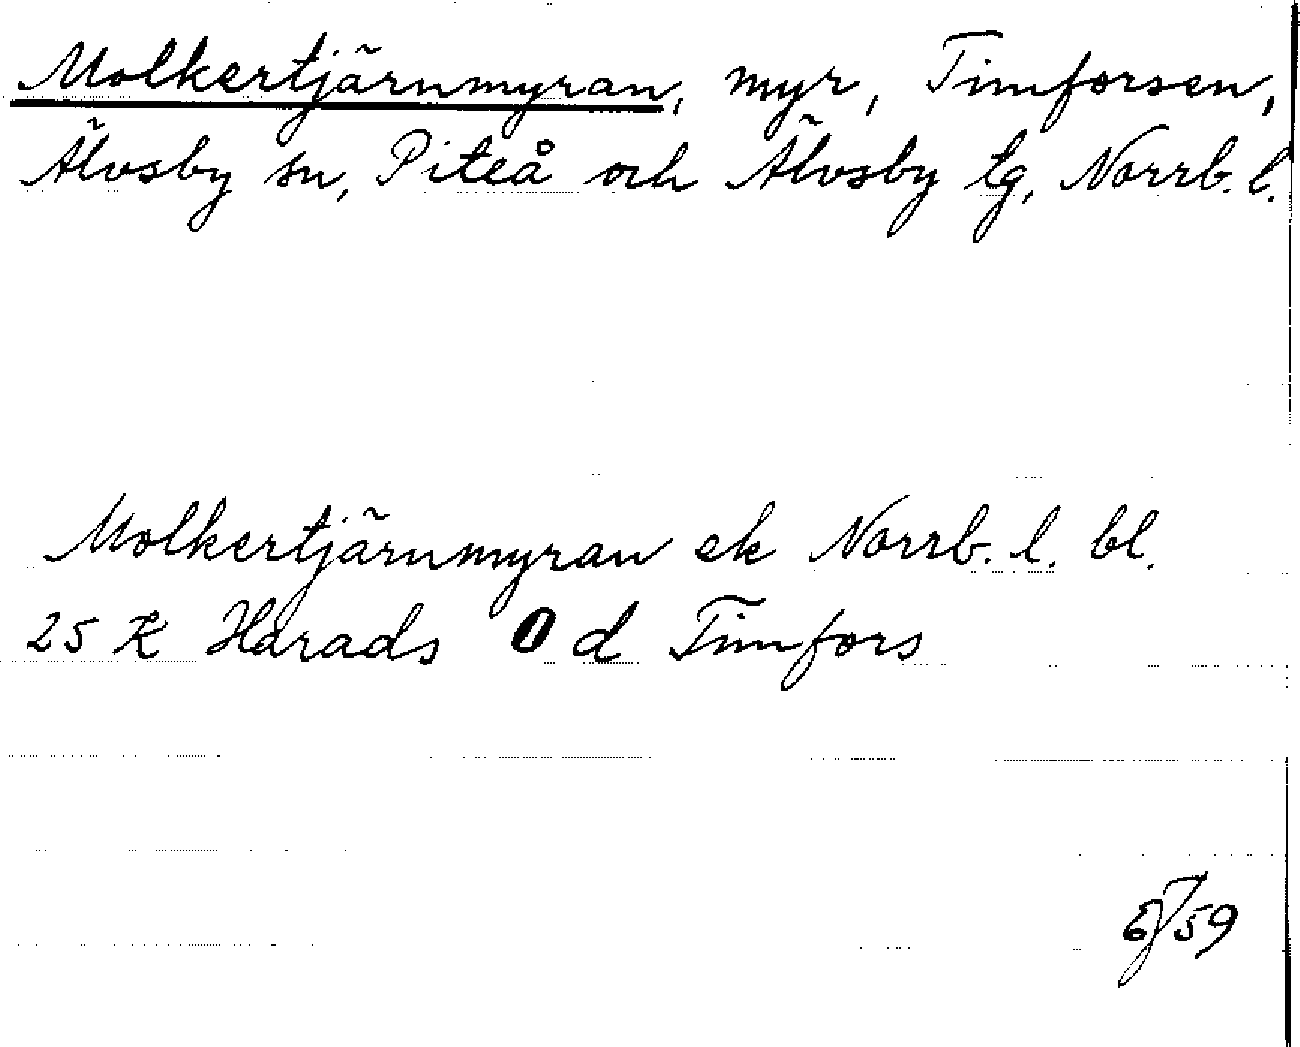 Molkertjärnmyran, myr, Timforsen,
Älvsby sn, Piteå och Älvsby tg, Norrb. l.
Molkertjärnmyran ek Norrb. l. bl.
25 K Harads 0 d Timfors
59